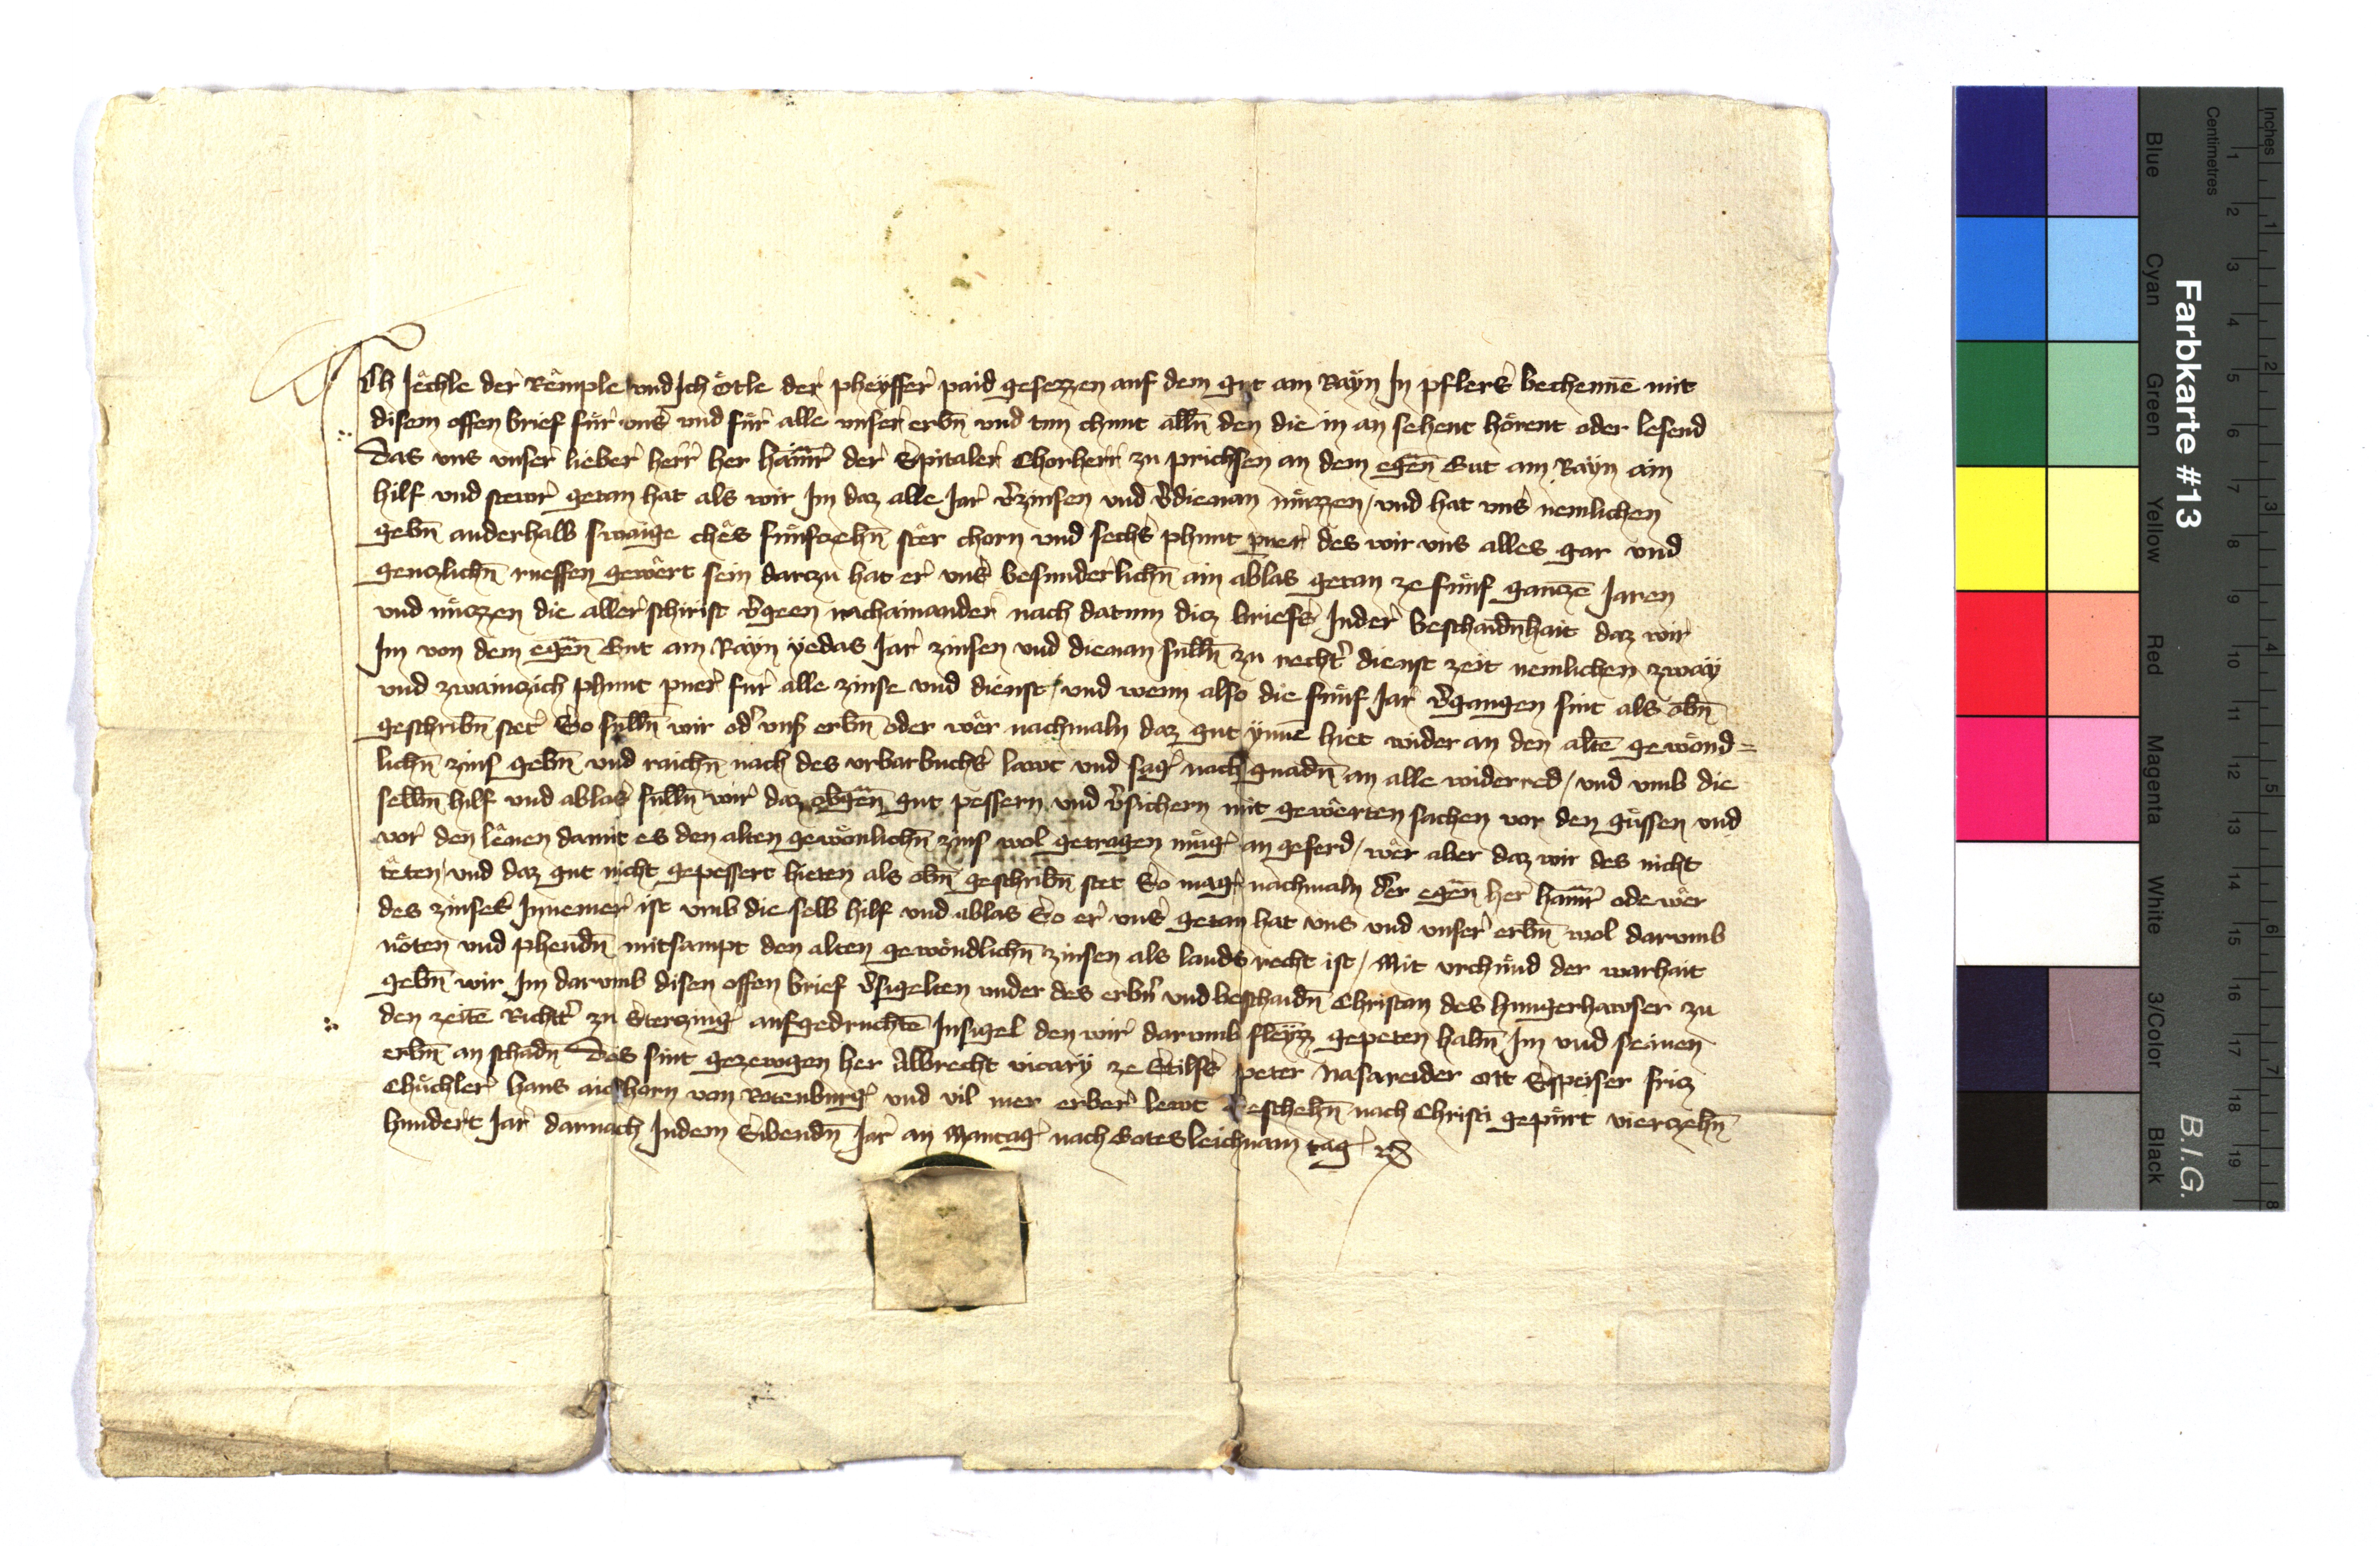 Ich Jêchle der Rêmple und Ich Ötle der pheyffer paid gesezzen auf dem gut am Raÿn In pflers bechennē mit
disem offen brief für uns und für alle unser erbn̄ und tun chunt alln̄ den die in an sehent hörent oder lesend
Das uns unser lieber herr her Hainr̄ der Spitaler Chorherr zu prichsen an dem egen̄ Gut am Raÿn ain
hilf und stewr getan hat als wir Im daz alle Jar v̾zinsen und v̾dienan müzzen / und hat uns nemlichen
gebn̄ anderhalb swaige chês fünfczehn̄ stêr chorn und sechs phunt pner des wir uns alles gar und
genczlichn̄ rueffen gewêrt sein darczu hat er uns besunderlichn̄ ain ablas getan ze fünf ganczē Jaren
und müzzen die aller schirist v̾geen nachainander nach datum dicz briefs Inder beschaidn̄hait daz wir
Im von dem egen̄ Gut am Raÿn yedas Jar zinsen und dienan sulln̄ zu recht̾ dienst zeit nemlichen zwaÿ
und zwainczich phunt pner für alle zinse und dienst / und wenn also die fünf Jar v̾gangen sint als obn̄
geschribn̄ stet So sulln̄ wir od̾ uns̾ erbn̄ oder wêr nachmaln daz gut ynnē hiet wider an den altē gewönd=
lichn̄ zins gebn̄ und raichn̄ nach des urbarbuchs lawt und sag nach gnadn̄ an alle widerred / und umb die
selbn̄ hilf und ablas sulln̄ wir daz obgen̄ gut pessern und v̾sichern mit gewêrten sachen vor den güssen und
vor den lênen damit es den alten gewönlichn̄ zins wol getragen müg an geferd / wêr aber daz wir des nicht
têten / und daz gut nicht gepessert hieten als obn̄ geschribn̄ stet So mag nachmaln der egen̄ her Hainr̄ ode wêr
des zinses Innemer ist umb die selb hilf und ablas So er uns getan hat uns und unser erbn̄ wol darumb
nöten und phendn̄ mitsampt den alten gewöndlichn̄ zinsen als lands recht ist / Mit urchünd der warhait
gebn̄ wir Im darumb disen offen brief v̾sigelten under des erbn̄ und beschaidn̄ Christan des hungerhawser zu
den zeitē Richt̾ zu Sterczing aufgedruchtē Insigel den wir darumb fleÿzz gepeten habn̄ Im und seinen
erbn̄ an schadn̄ Des sint gezewgen her Albrecht vicary ze Stilfs peter Nasareider ott Speiser fricz
Chüchler hans aichorn von Rotenburg und vil mer erber lewt Geschehn̄ nach Christi gepürt vierczehn̄
hundert Jar darnach Indem Sibendn̄ Jar an Mantag nach Gotesleichnam tag
Farbkarte #13
B.I.G.
Inches
Centimetres
Blue
Cyan
Green
Yellow
Red
Magenta
White
3/Color
Black
1 2 3 4 5 6 7 8 9 10 11 12 13 14 15 16 17 18 19
1 2 3 4 5 6 7 8